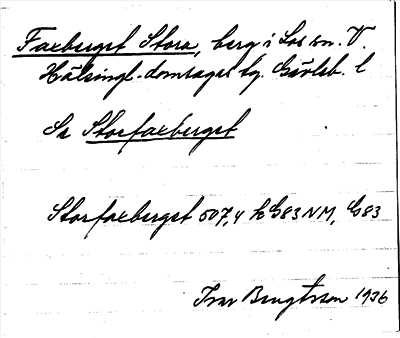 Faxberget Stora, berg i Los sn. V.
Hälsingl. domsagas tg. Gävleb. l
Se Storfaxberget
Storfaxberget 507,4 h G83NM, G83
Ivar Bengtsson 1936